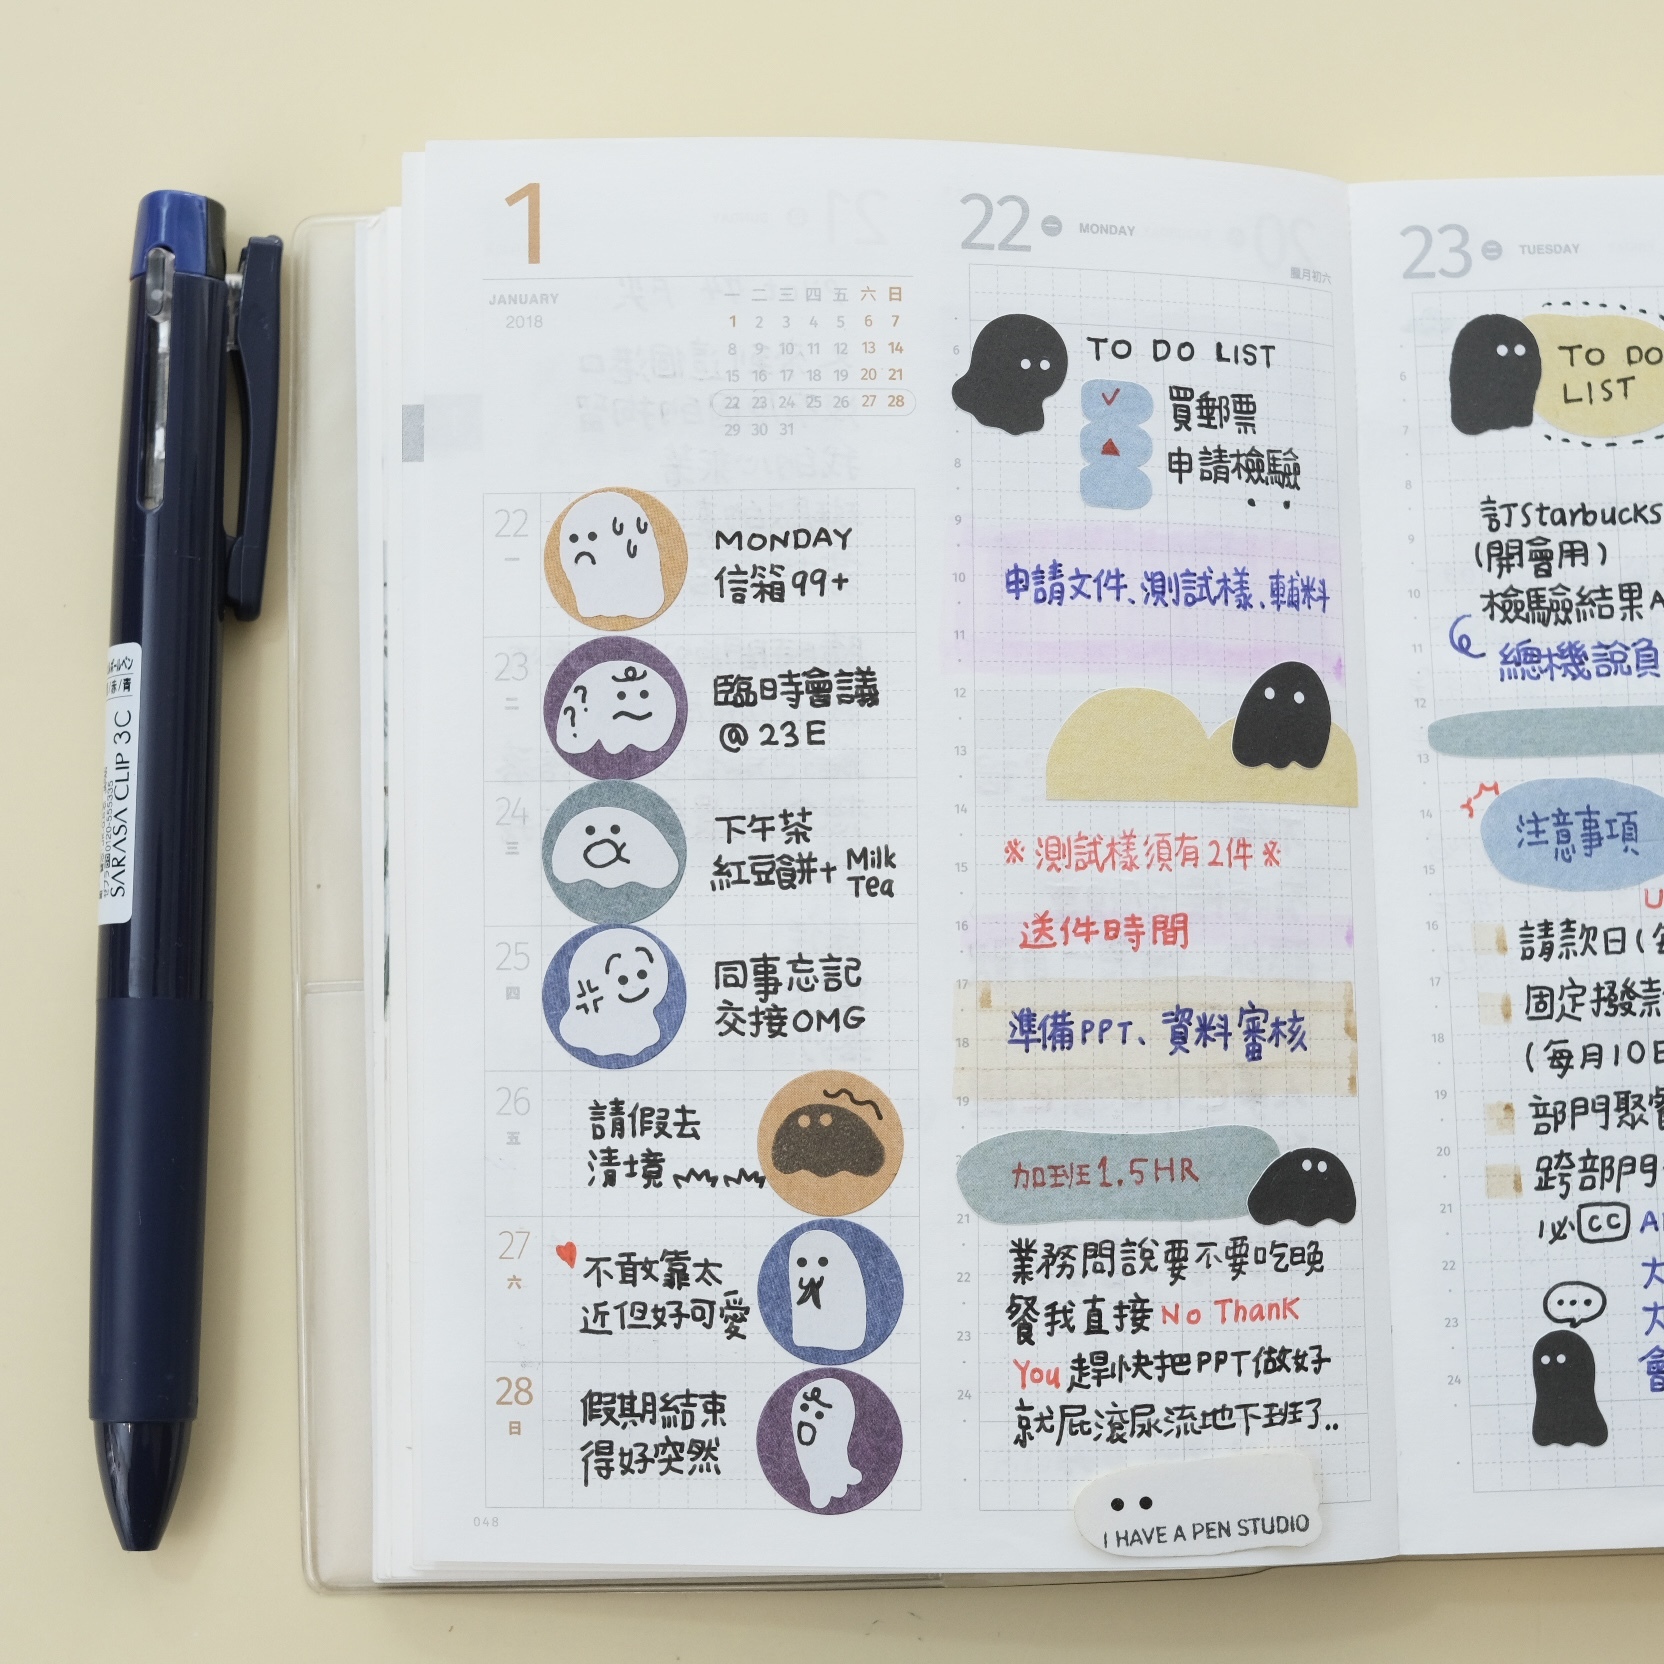 1
JANUARY
2018
一 二 三 四 五 六 日
1 2 3 4 5 6 7
8 9 10 11 12 13 14
15 16 17 18 19 20 21
22 23 24 25 26 27 28
29 30 31
22
一
MONDAY
信箱99+
23
二
臨時會議
@ 23E
24
三
下午茶
紅豆餅+ Milk
Tea
25
四
同事忘記
交接OMG
26
五
請假去
清境
27
六
不敢靠太
近但好可愛
28
日
假期結束
得好突然
048
22 一 MONDAY
臘月初六
TO DO LIST
買郵票
申請檢驗
申請文件、測試樣、輔料
※測試樣須有2件※
送件時間
準備PPT、資料審核
加班1.5HR
業務問說要不要吃晚
餐我直接No Thank
You趕快把PPT做好
就屁滾尿流地下班了..
6
7
8
9
10
11
12
13
14
15
16
17
18
19
21
22
23
24
I HAVE A PEN STUDIO
23 二 TUESDAY
TO DO
LIST
訂Starbucks
(開會用)
檢驗結果
總機說負
注意事項
U
請款日(每
固定撥款
(每月10日
部門聚餐
跨部門
必CC A
大
大
會
6
7
8
9
10
11
12
13
14
15
16
17
18
19
20
21
22
23
24
SARASA CLIP 3C
0120-555335
ボールペン
/赤/青